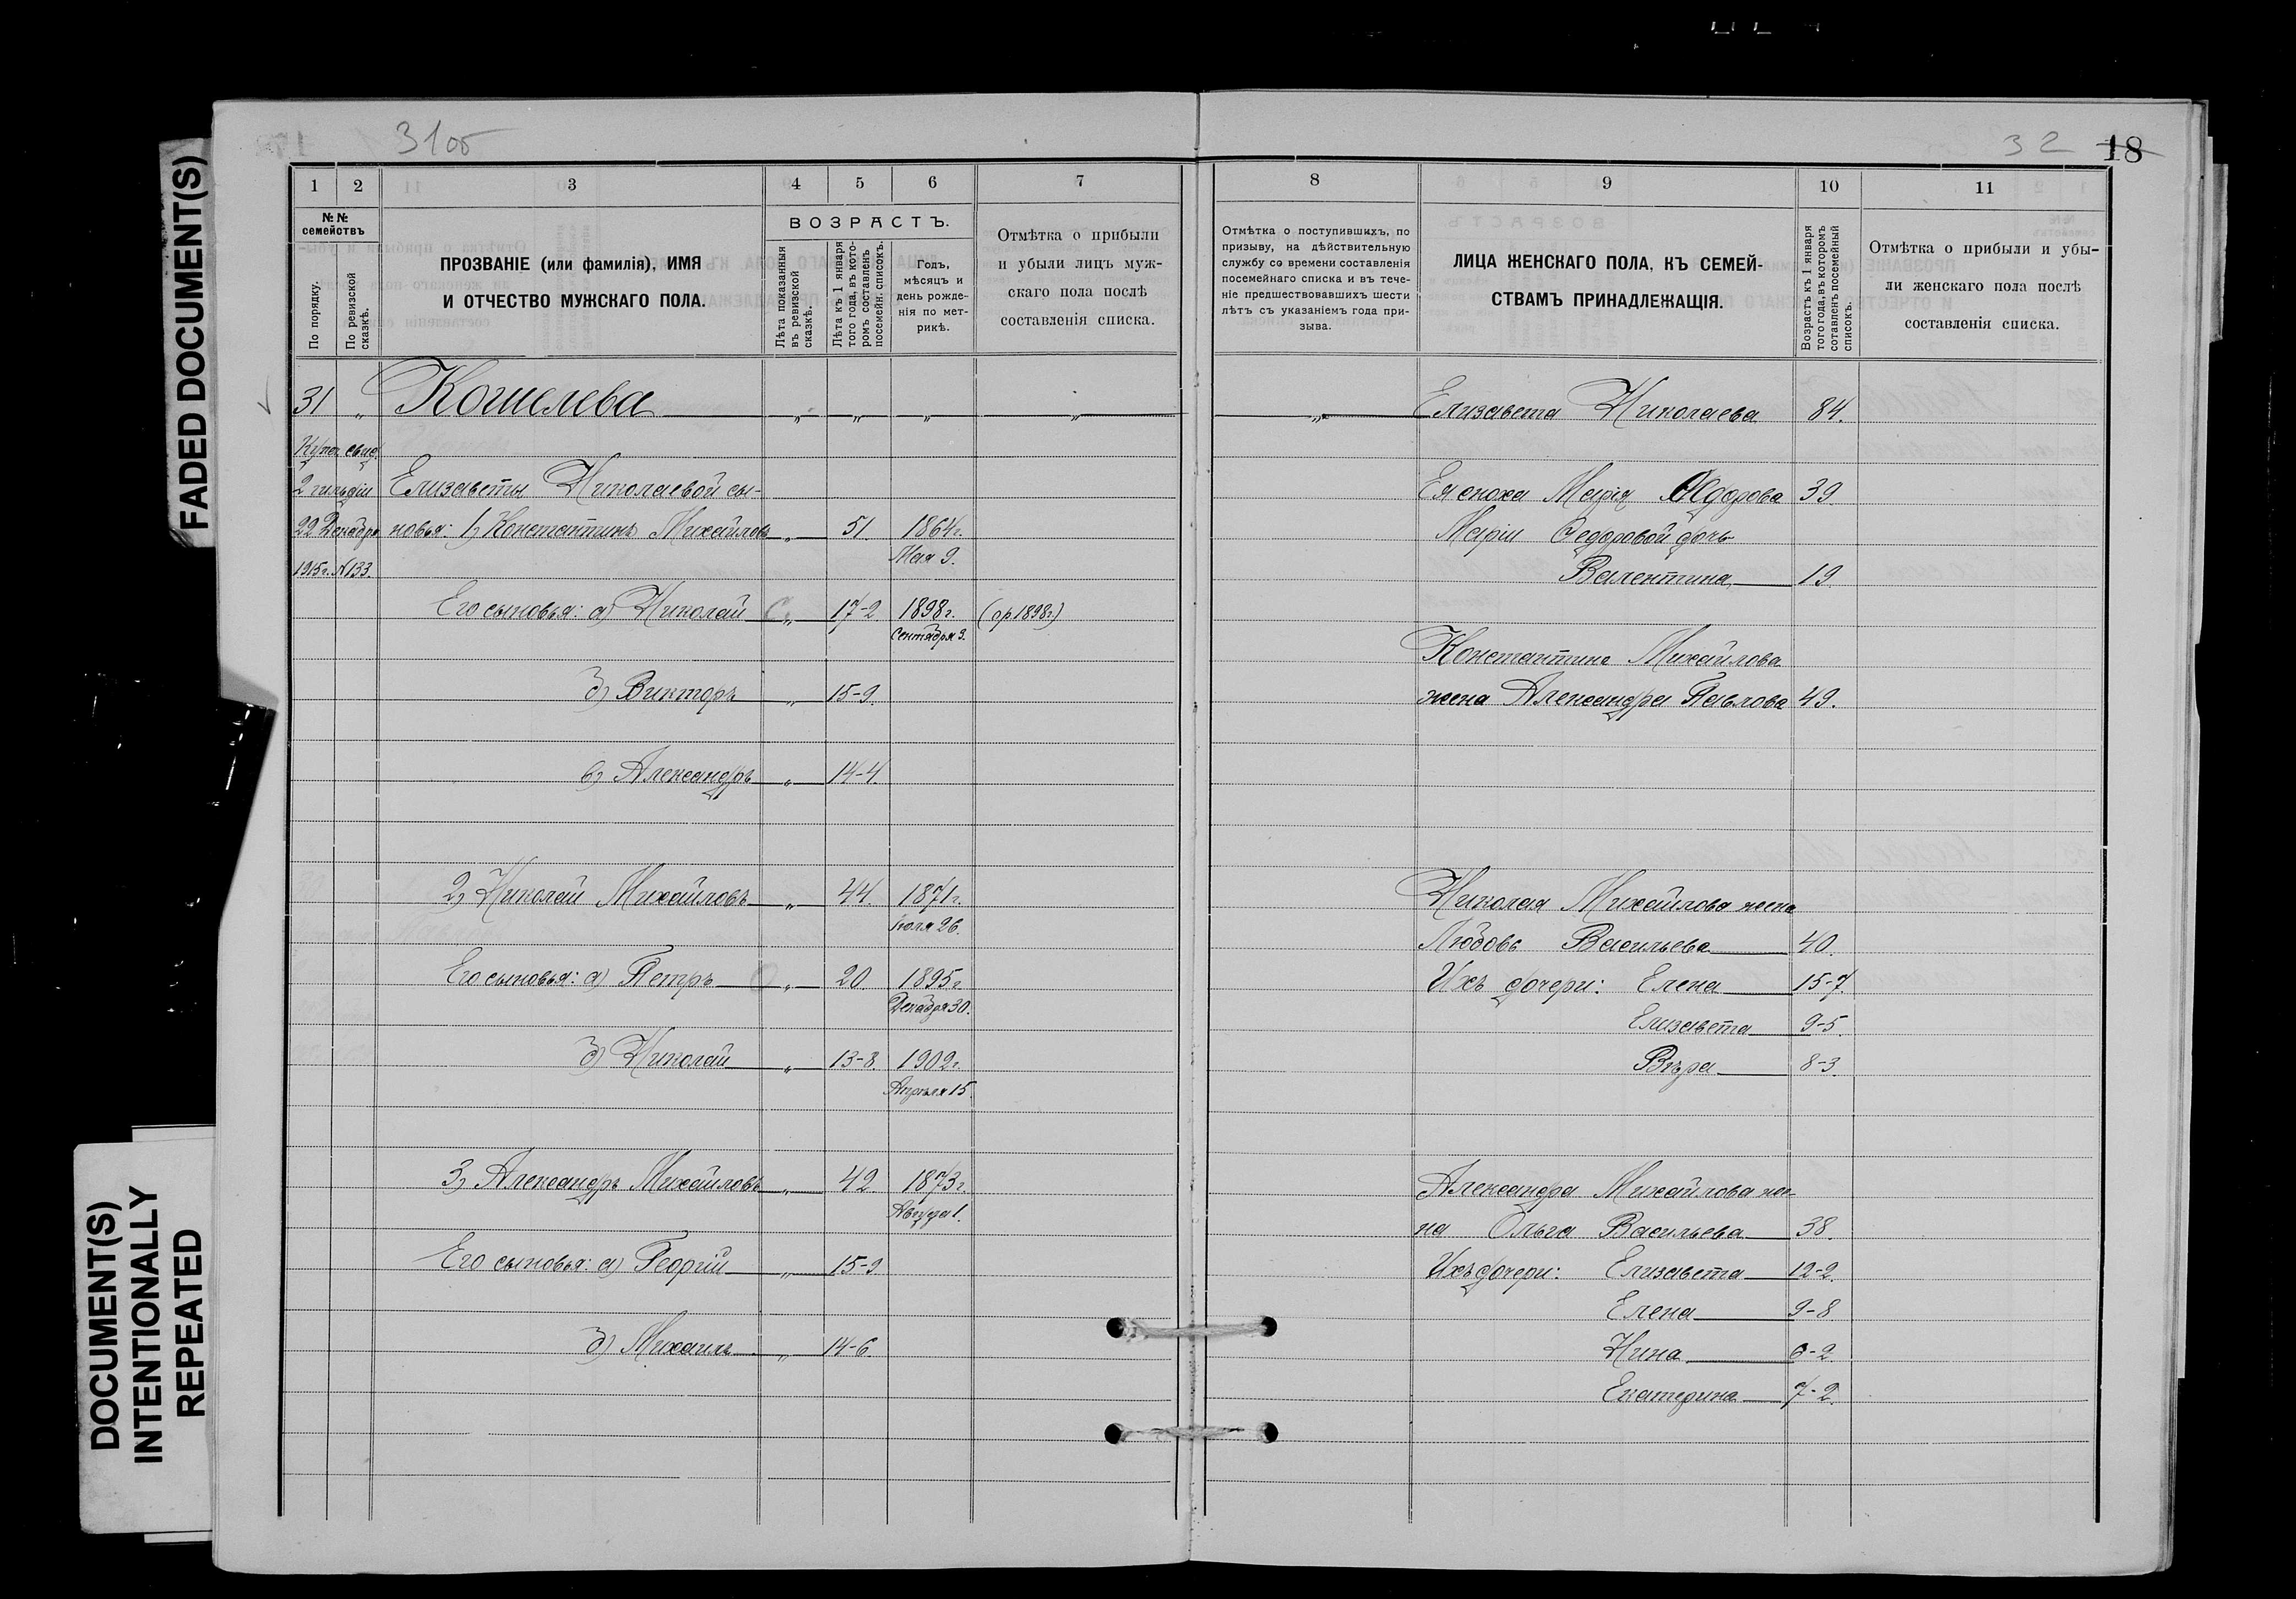 FADED DOCUMENT(S)
DOCUMENT(S)
INTENTIONALLY
REPEATED
31об
1
2
3
4
5
6
7
№ №
семействъ
По порядку.
По ревизской
сказкѣ.
ПРОЗВАНІЕ (или фамилія), ИМЯ
И ОТЧЕСТВО МУЖСКАГО ПОЛА.
ВОЗРАСТЪ.
Лѣта показанныя
въ ревизской
сказкѣ.
Лѣта къ 1 января
того года, въ кото-
ромъ составленъ
посемейн. списокъ.
Годъ,
мѣсяцъ и
день рожде-
нія по мет-
рикѣ.
Отмѣтка о прибыли
и убыли лицъ муж-
скаго пола послѣ
составленія списка.
31 " Кошелева " " " "
Купеч. свид.
2 гильдіи Елизаветы Николаевой сы-
22 Декабря новья: 1) Константинъ Михайловъ " 51 1864г.
1915г. №133. Мая 9.
Его сыновья: а) Николай " 17-2 1898г. (ср.1898г.)
Сентября 9.
б) Викторъ " 15-9.
в) Александръ " 14-4.
2) Николай Михайловъ " 44. 1871г.
Іюля 26.
Его сыновья: а) Петръ " 20 1895г
Декабря 30.
б) Николай " 13-8. 1902г.
Апрѣля 15.
3) Александръ Михайловъ " 42 1873г.
Августа 1.
Его сыновья: а) Георгій " 15-9
б) Михаилъ " 14-6.
32 18
8
9
10
11
Отмѣтка о поступившихъ, по
призыву, на дѣйствительную
службу со времени составленія
посемейнаго списка и въ тече-
ніе предшествовавшихъ шести
лѣтъ съ указаніемъ года при-
зыва.
ЛИЦА ЖЕНСКАГО ПОЛА, КЪ СЕМЕЙ-
СТВАМЪ ПРИНАДЛЕЖАЩІЯ.
Возрастъ къ 1 января
того года, въ которомъ
сотавленъ посемейный
списокъ.
Отмѣтка о прибыли и убы-
ли женскаго пола послѣ
составленія списка.
" Елизавета Николаева 84.
Ея сноха Марія Ѳедорова 39
Маріи Федоровой дочь
Валентина 19
Константина Михайлова
жена Александра Павлова 49.
Николая Михайлова жена
Любовь Васильева 40.
Ихъ дочери: Елена 15-7.
Елизавета 9-5.
Вѣра 8-3.
Александра Михайлова же-
на Ольга Васильева 38.
Ихъ дочери: Елизавета 12-2.
Елена 9-8
Нина
Екатерина 7-2.